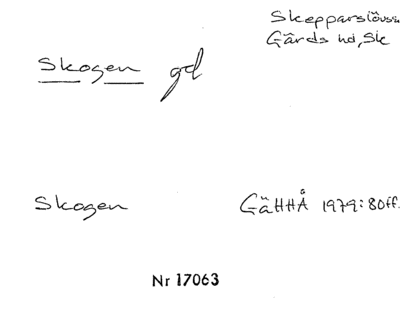 Skepparslövs
Gärds hd, Sk
Skogen gd
Skogen GäHHÅ 1979:80ff.
Nr 17063